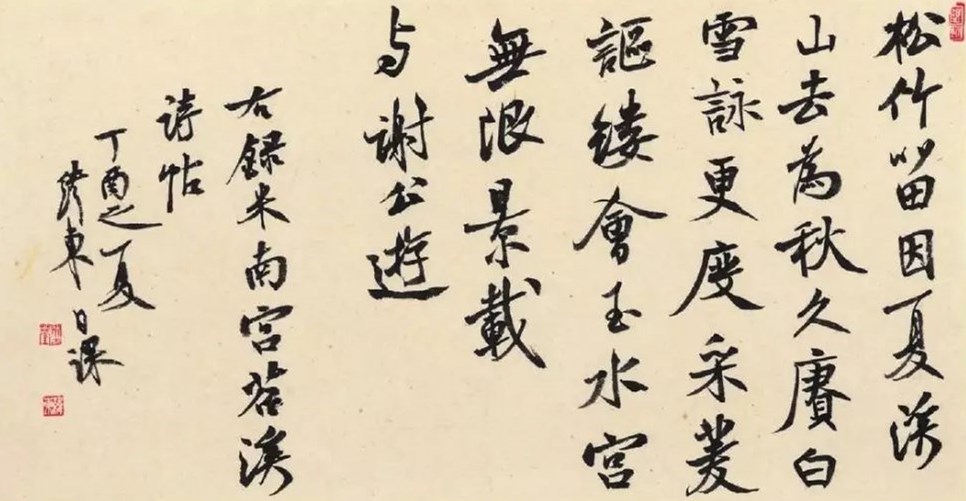 松竹留因夏溪
山去為秋久賡白
雪詠更度采菱
謳縷會玉水宫
無限景載
与謝公遊
右録米南宫苕溪
詩帖
丁酉之夏
東日課